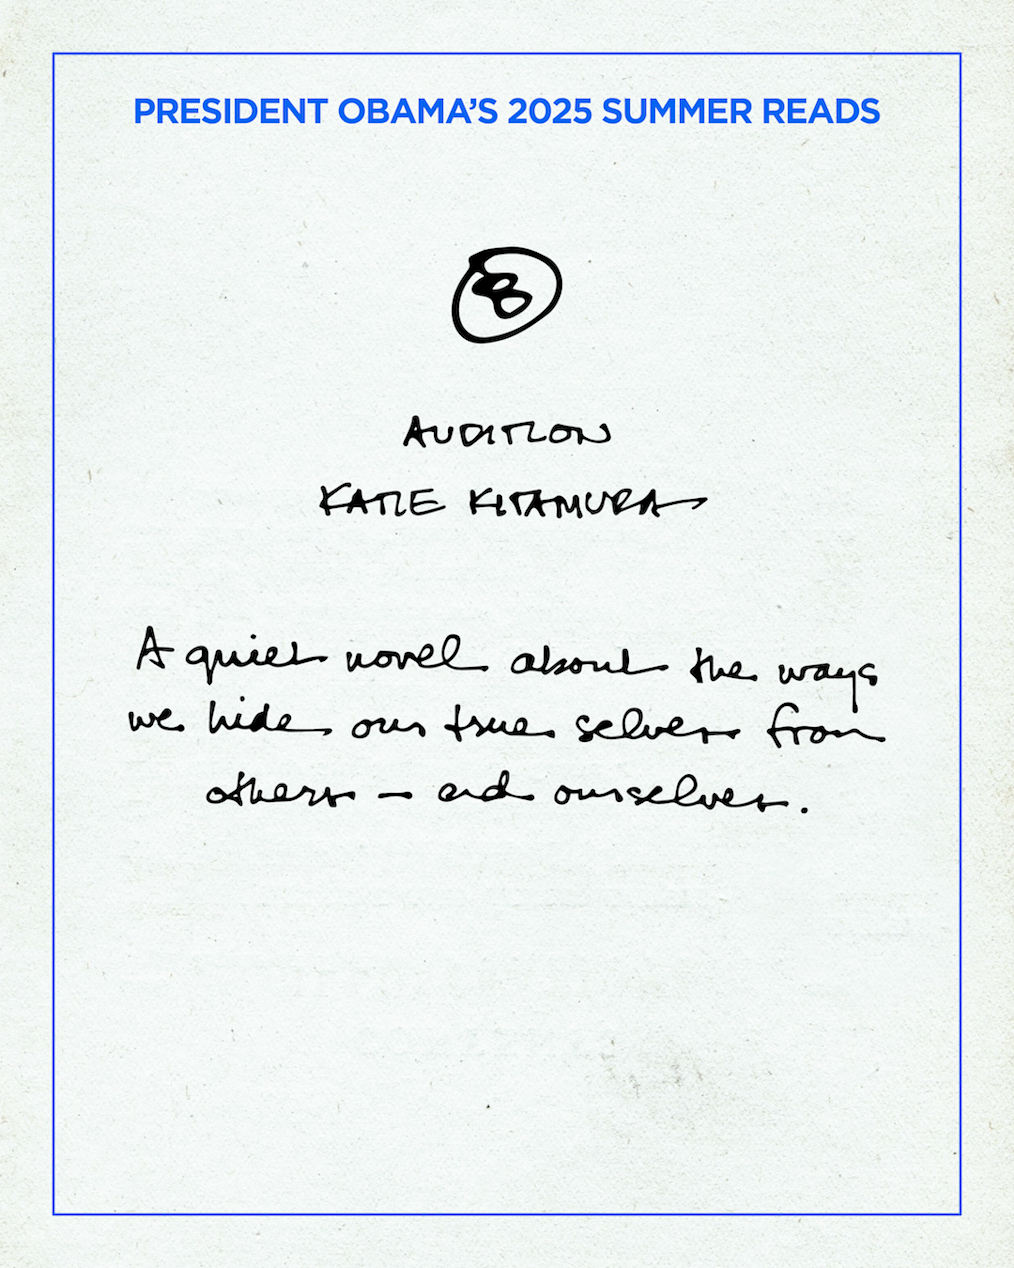 PRESIDENT OBAMA'S 2025 SUMMER READS
8
AUDITION
KATIE KITAMURA
A quiet novel about the ways
we hide our true selves from
others – and ourselves.